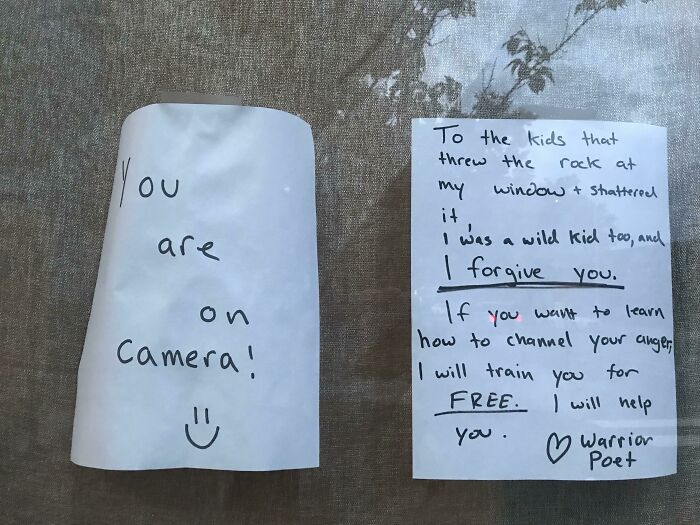 You
are
on
Camera!
To the kids that
threw the rock at
my window + shattered
it,
I was a wild kid too, and
I forgive you.
If you want to learn
how to channel your anger,
I will train you for
FREE. I will help
you. ♡ Warrior
Poet